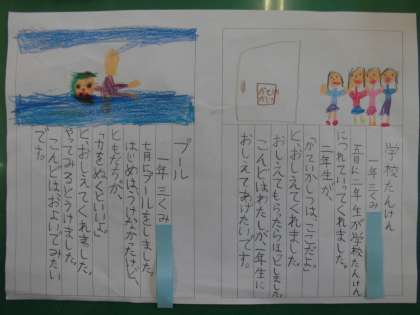 学校たんけん
一年三くみ
五月に二年生が学校たんけん
につれていってくれました。
二年生が、
「かていかしつは、ここだよ」
と、おしえてくれました。
おしえてもらったらほっとしました
こんどはわたしが、一年生に
おしえてあげたいです。
プール
一年三くみ
七月にプールをしました。
はじめは、うけなかったけど、
ともだちが、
「力をぬくといいよ」
と、おしえてくれました。
やってみるとうけました。
こんどは、およいでみたい
です。